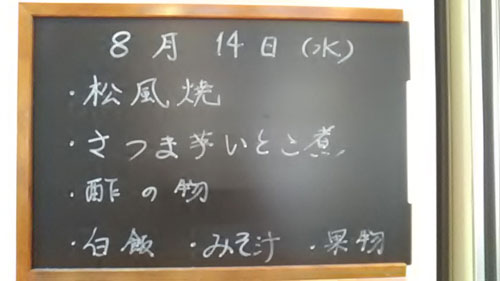 8月14日(水)
・松風焼
・さつま芋いとこ煮
・酢の物
・白飯 ・みそ汁 ・果物